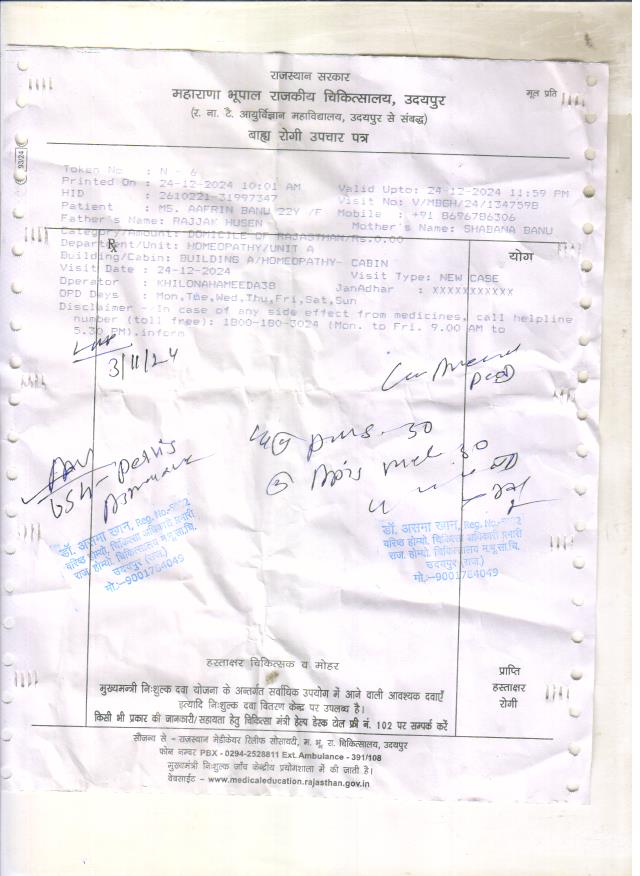 राजस्थान सरकार
महाराणा भूपाल राजकीय चिकित्सालय, उदयपुर
मूल प्रति
(र. ना. टै. आयुर्विज्ञान महाविद्यालय, उदयपुर से संबद्ध)
बाह्य रोगी उपचार पत्र
93/24
Token No : N - 6
Printed On : 24-12-2024 10:01 AM Valid Upto: 24-12-2024 11:59 PM
HID : 2610221-31997347 Visit No: V/MBGH/24/1347598
Patient : MS. AAFRIN BANU 22Y /F Mobile : +91 8696786306
Father's Name: RAJJAK HUSEN Mother's Name: SHABANA BANU
Category/Amount: DOMICILE OF RAJASTHAN/Rs.0.00
Rx
योग
Department/Unit: HOMEOPATHY/UNIT A
Building/Cabin: BUILDING A/HOMEOPATHY- CABIN
Visit Date : 24-12-2024 Visit Type: NEW CASE
Operator : KHILONAHAMEEDA38 JanAdhar : XXXXXXXXXXX
OPD Days : Mon,Tue,Wed,Thu,Fri,Sat,Sun
Disclaimer - In case of any side effect from medicines, call helpline
number (toll free): 1800-180-3024 (Mon. to Fri. 9.00 AM to
5.30 PM).inform
3/11/24
puls. 30
Apis mel 30
Adv
USG - pelvis
डॉ. असमा खान, Reg. No.
वरिष्ठ होम्यो. चिकित्सा अधिकारी प्रभारी
राज. होम्यो. चिकित्सालय म.भू.सा.चि.
उदयपुर (राज.)
मो.:-9001764049
डॉ. असमा खान, Reg. No.
वरिष्ठ होम्यो. चिकित्सा अधिकारी प्रभारी
राज. होम्यो. चिकित्सालय म.भू.सा.चि.
उदयपुर (राज.)
मो.:-9001764049
हस्ताक्षर चिकित्सक व मोहर
प्राप्ति
हस्ताक्षर
रोगी
मुख्यमन्त्री निःशुल्क दवा योजना के अन्तर्गत सर्वाधिक उपयोग में आने वाली आवश्यक दवाएँ
इत्यादि निःशुल्क दवा वितरण केन्द्र पर उपलब्ध है।
किसी भी प्रकार की जानकारी/सहायता हेतु चिकित्सा मंत्री हेल्प डेस्क टोल फ्री नं. 102 पर सम्पर्क करें
सौजन्य से - राजस्थान मेडीकेयर रिलीफ सोसायटी, म. भू. रा. चिकित्सालय, उदयपुर
फोन नम्बर PBX - 0294-2528811 Ext. Ambulance - 391/108
मुख्यमंत्री निःशुल्क जाँच केन्द्रीय प्रयोगशाला में की जाती है।
वेबसाईट - www.medicaleducation.rajasthan.gov.in